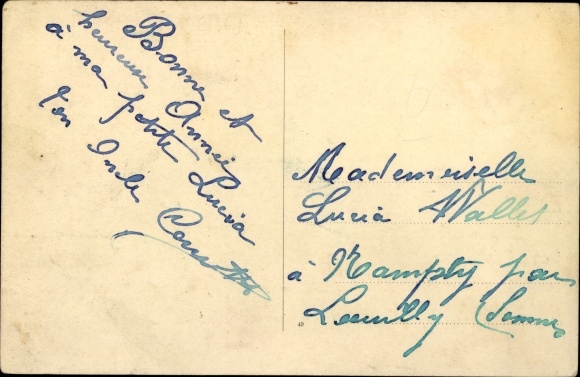 Bonne et
heureuse Année
à ma petite Lucia
ton Oncle
Mademoiselle
Lucia Wallet
à Nampty par
Loeuilly (Somme)